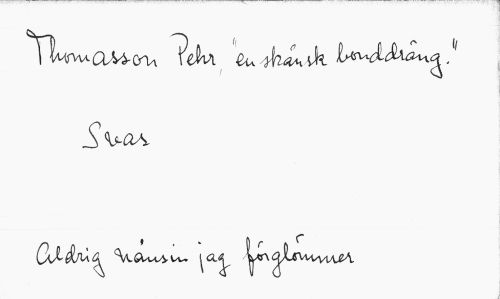 Thomasson Pehr, "en skånsk bonddräng."
Svar
Aldrig nånsin jag förglömmer